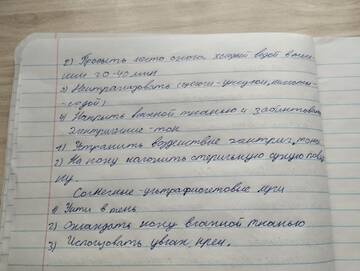 2) Промыть место ожога холодной водой в течении 20-40 мин
3) Нейтрализовать (щелочи-уксусом, кислоты-
-содой)
4) Накрыть влажной тканью и забинтовать
Электрические-ток
1) Устранить воздействие электрич. тока
2) На кожу наложить стерильную сухую повяз
ку.
Солнечные-ультрафиолетовые лучи
1) Уйти в тень
2) Охлаждать кожу влажной тканью
3) Использовать увлаж. крем.